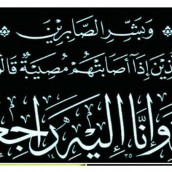 وَبَشِّرِ الصَّابِرِيْنَ
ذِيْنَ إِذَا أَصَابَتْهُمْ مُصِيْبَةٌ قَالُو
وَإِنَّا إِلَيْهِ رَاجِعُ